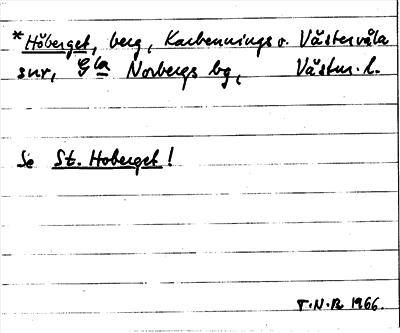 *Höberget, berg, Karbennings o. Västervåla
snr, Gla Norbergs bg, Västm. l.
Se St. Hoberget!
T.N.R 1966.